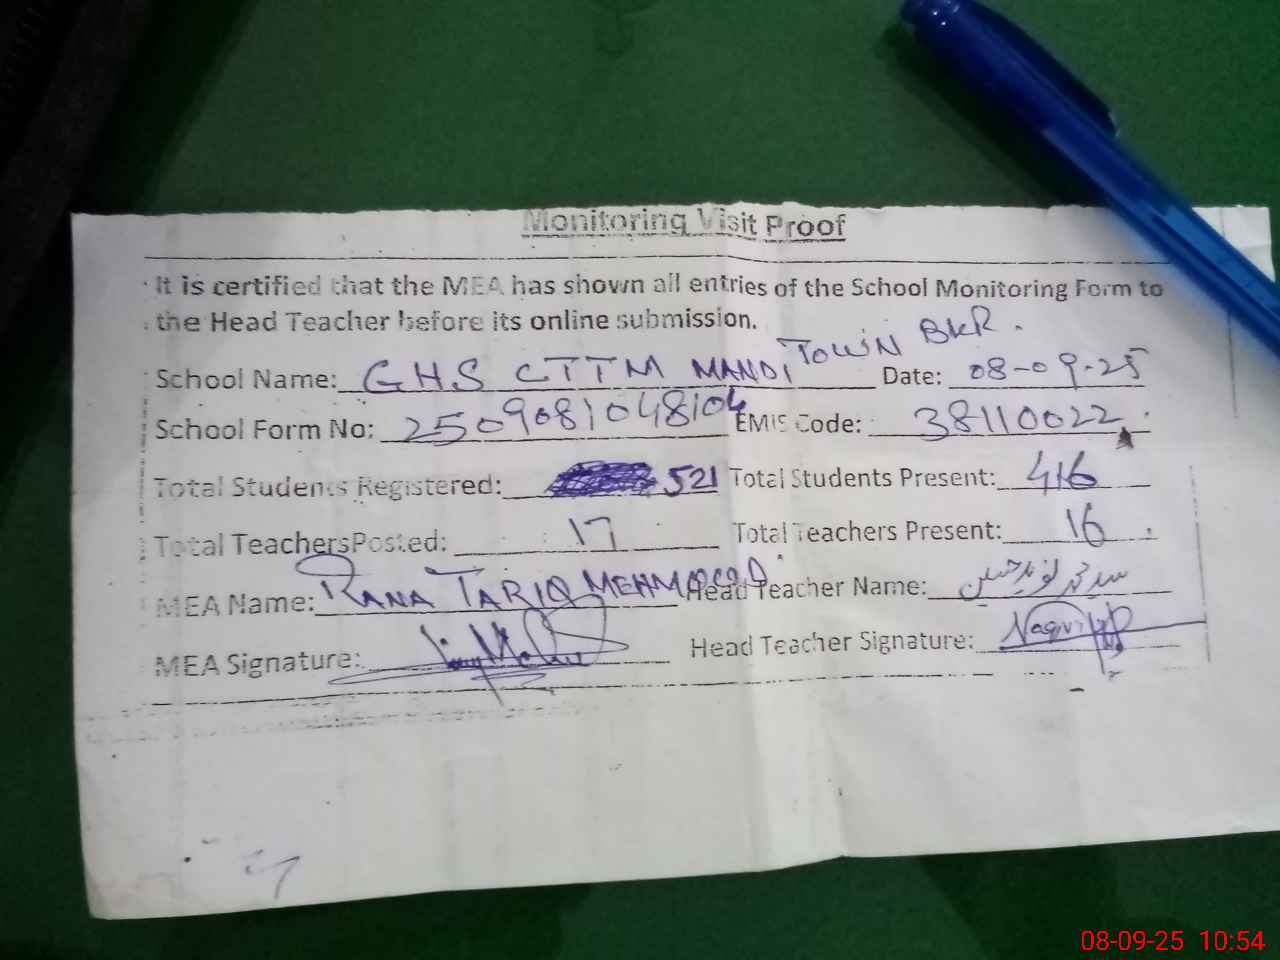 Monitoring Visit Proof
It is certified that the MEA has shown all entries of the School Monitoring Form to
the Head Teacher before its online submission.
School Name: GHS CTTM MANDI TOWN BKR. Date: 08-09-25
School Form No: 2509081048104 EMIS Code: 38110022
Total Students Registered: 521 Total Students Present: 416
Total Teachers Posted: 17 Total Teachers Present: 16
MEA Name: RANA TARIQ MEHMOOD Head Teacher Name:
MEA Signature: Head Teacher Signature: Naqvi
08-09-25 10:54